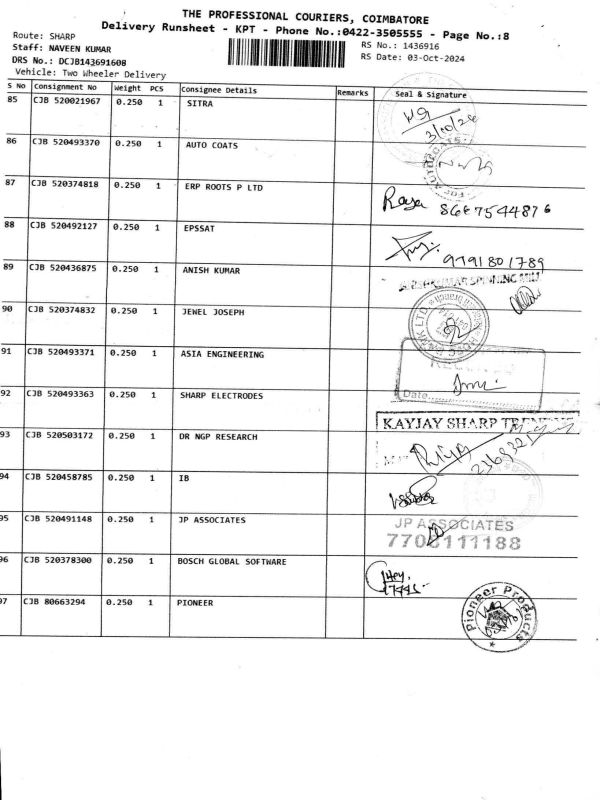 THE PROFESSIONAL COURIERS, COIMBATORE
Delivery Runsheet - KPT - Phone No.:0422-3505555 - Page No.:8
Route: SHARP
Staff: NAVEEN KUMAR
DRS No.: DCJB143691608
Vehicle: Two Wheeler Delivery
RS No.: 1436916
RS Date: 03-Oct-2024
S No Consignment No Weight PCS Consignee Details Remarks Seal & Signature
85 CJB 520021967 0.250 1 SITRA
3/10/24
86 CJB 520493370 0.250 1 AUTO COATS
87 CJB 520374818 0.250 1 ERP ROOTS P LTD
88 CJB 520492127 0.250 1 EPSSAT
9791801789
89 CJB 520436875 0.250 1 ANISH KUMAR
90 CJB 520374832 0.250 1 JEWEL JOSEPH
91 CJB 520493371 0.250 1 ASIA ENGINEERING
Date
92 CJB 520493363 0.250 1 SHARP ELECTRODES
KAYJAY SHARP
93 CJB 520503172 0.250 1 DR NGP RESEARCH
Priya
94 CJB 520458785 0.250 1 IB
95 CJB 520491148 0.250 1 JP ASSOCIATES
JP ASSOCIATES
7708111188
96 CJB 520378300 0.250 1 BOSCH GLOBAL SOFTWARE
97 CJB 80663294 0.250 1 PIONEER
Pioneer Products